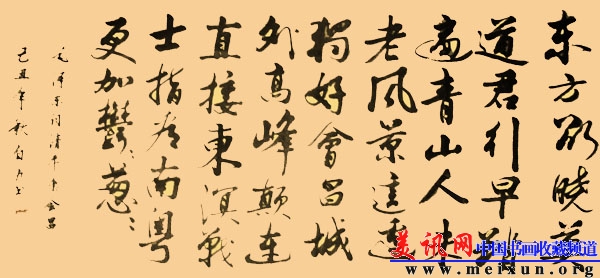 东方欲晓莫
道君行早踏
遍青山人未
老风景这边
獨好會昌城
外高峰颠连
直接東溟戰
士指看南粤
更加鬱々葱々
毛泽东词清平乐会昌
己丑年秋
美讯网 中国书画收藏频道
www.meixun.org